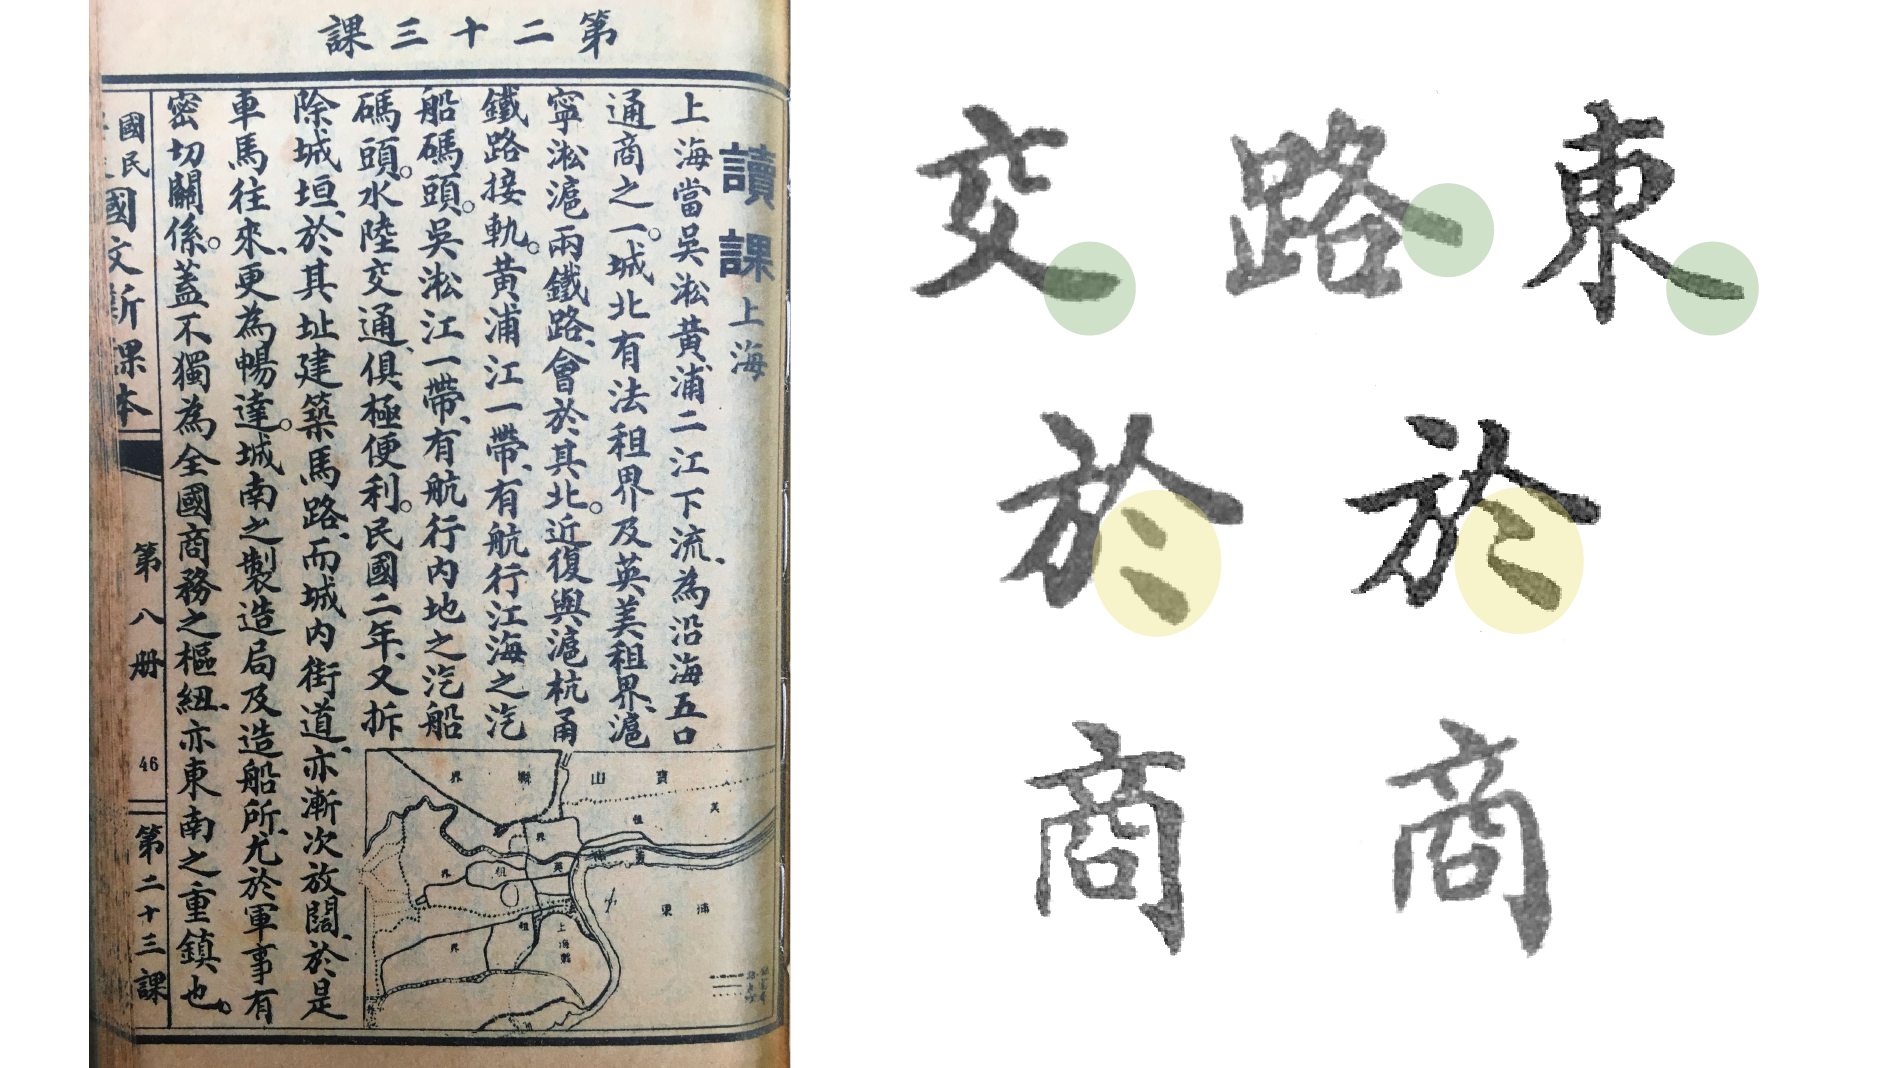 第二十三課
讀課 上海
上海當吳淞黃浦二江下流、為沿海五口
通商之一。城北有法租界及英美租界、滬
寧淞滬兩鐵路、會於其北。近復與滬杭甬
鐵路接軌。黃浦江一帶、有航行江海之汽
船碼頭。吳淞江一帶、有航行內地之汽船
碼頭。水陸交通、俱極便利。民國二年、又拆
除城垣、於其址建築馬路、而城內街道、亦漸次放闊、於是
車馬往來、更為暢達。城南之製造局及造船所、尤於軍事有
密切關係。蓋不獨為全國商務之樞紐、亦東南之重鎮也。
寶山縣界
美租界
英租界
界
浦東
上海縣
國民
國文新課本
第八册
46
第二十三課
交路東
於於
商商